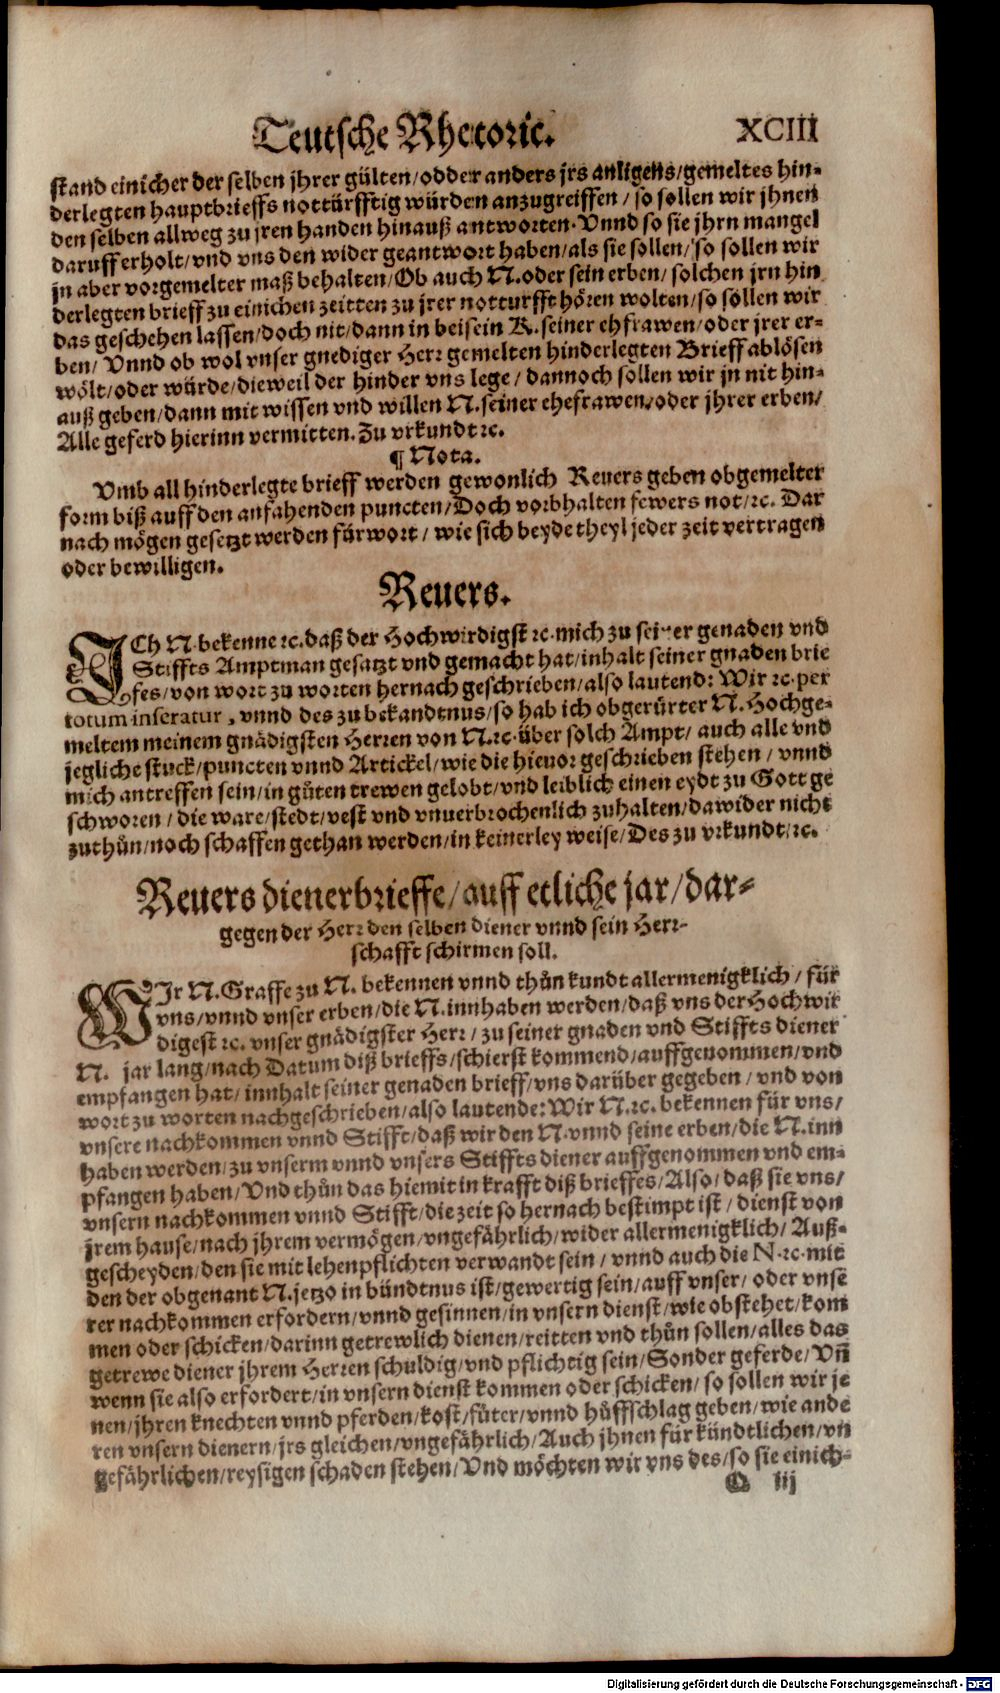 Teutsche Rhetoric. XCIII
stand einicher der selben jhrer gülten/odder anders jrs anligens/gemeltes hin-
derlegten hauptbrieffs nottürfftig würden anzugreiffen / so sollen wir jhnen
den selben allweg zu jren handen hinauß antworten. Vnnd so sie jhrn mangel
daruff erholt/vnd vns den wider geantwort haben/als sie sollen/so sollen wir
jn aber vorgemelter maß behalten/Ob auch N.oder sein erben/ solchen jrn hin
derlegten brieff zu einichen zeitten zu jrer notturfft hören wolten/so söllen wir
das geschehen lassen/doch nit/dann in beisein K.seiner ehfrawen/oder jrer er-
ben/ Vnnd ob wol vnser gnediger Herr gemelten hinderlegten Brieff ablösen
wölt/oder würde/dieweil der hinder vns lege / dannoch sollen wir jn nit hin-
auß geben/dann mit wissen vnd willen N.seiner ehefrawen/oder jhrer erben/
Alle geferd hierinn vermitten. Zu vrkundt ꝛc.
¶ Nota.
Vmb all hinderlegte brieff werden gewonlich Reuers geben obgemelter
form biß auff den anfahenden puncten/Doch vorbhalten fewers not/ꝛc. Dar
nach mögen gesetzt werden fürwort / wie sich beyde theyl jeder zeit vertragen
oder bewilligen.
Reuers.
ICh N.bekenne ꝛc.daß der Hochwirdigst ꝛc.mich zu seiner genaden vnd
Stiffts Amptman gesatzt vnd gemacht hat/inhalt seiner gnaden brie
fes/von wort zu worten hernach geschrieben/also lautend: Wir ꝛc.per
totum inseratur, vnnd des zu bekandtnus/so hab ich obgerürter N.Hochge-
meltem meinem gnädigsten Herren von N.ꝛc.über solch Ampt/ auch alle vnd
jegliche stuck/puncten vnnd Artickel/wie die hieuor geschrieben stehen / vnnd
mich antreffen sein/in güten trewen gelobt/vnd leiblich einen eydt zu Gott ge
schworen / die ware/stedt/vest vnd vnuerbrochenlich zuhalten/dawider nicht
zuthůn/noch schaffen gethan werden/in keinerley weise/Des zu vrkundt/ꝛc.
Reuers dienerbrieffe/auff etliche jar/dar-
gegen der Herr den selben diener vnnd sein Herr-
schafft schirmen soll.
WIr N.Graffe zu N. bekennen vnnd thůn kundt allermenigklich / für
vns/vnnd vnser erben/die N.innhaben werden/daß vns der Hochwir
digest ꝛc. vnser gnädigster Herr / zu seiner gnaden vnd Stiffts diener
N. jar lang/nach Datum diß brieffs/schierst kommend/auffgenommen/vnd
empfangen hat/ innhalt seiner genaden brieff/vns darüber gegeben / vnd von
wort zu worten nachgeschrieben/also lautende: Wir N.ꝛc. bekennen für vns/
vnsere nachkommen vnnd Stifft/daß wir den N.vnnd seine erben/die N.inn
haben werden/zu vnserm vnnd vnsers Stiffts diener auffgenommen vnd em-
pfangen haben/Vnd thůn das hiemit in krafft diß brieffes/Also/daß sie vns/
vnsern nachkommen vnnd Stifft/die zeit so hernach bestimpt ist / dienst von
jrem hause/nach jhrem vermögen/vngefährlich/wider allermenigklich/ Auß-
gescheyden/den sie mit lehenpflichten verwandt sein / vnnd auch die N.ꝛc.mit
den der obgenant N.jetzo in bündtnus ist/gewertig sein/auff vnser/ oder vnse
rer nachkommen erfordern/vnnd gesinnen/in vnsern dienst/wie obstehet/kom
men oder schicken/darinn getrewlich dienen/reitten vnd thůn sollen/alles das
getrewe diener jhrem Herren schuldig/vnd pflichtig sein/Sonder geferde/Vñ
wenn sie also erfordert/in vnsern dienst kommen oder schicken/ so sollen wir je
nen/jhren knechten vnnd pferden/kost/fůter/vnnd hůffschlag geben/wie ande
ren vnsern dienern/jrs gleichen/vngefährlich/Auch jhnen für kündtlichen/vn
gefährlichen/reysigen schaden stehen/Vnd möchten wir vns des/so sie einich-
Q iij
Digitalisierung gefördert durch die Deutsche Forschungsgemeinschaft - DFG